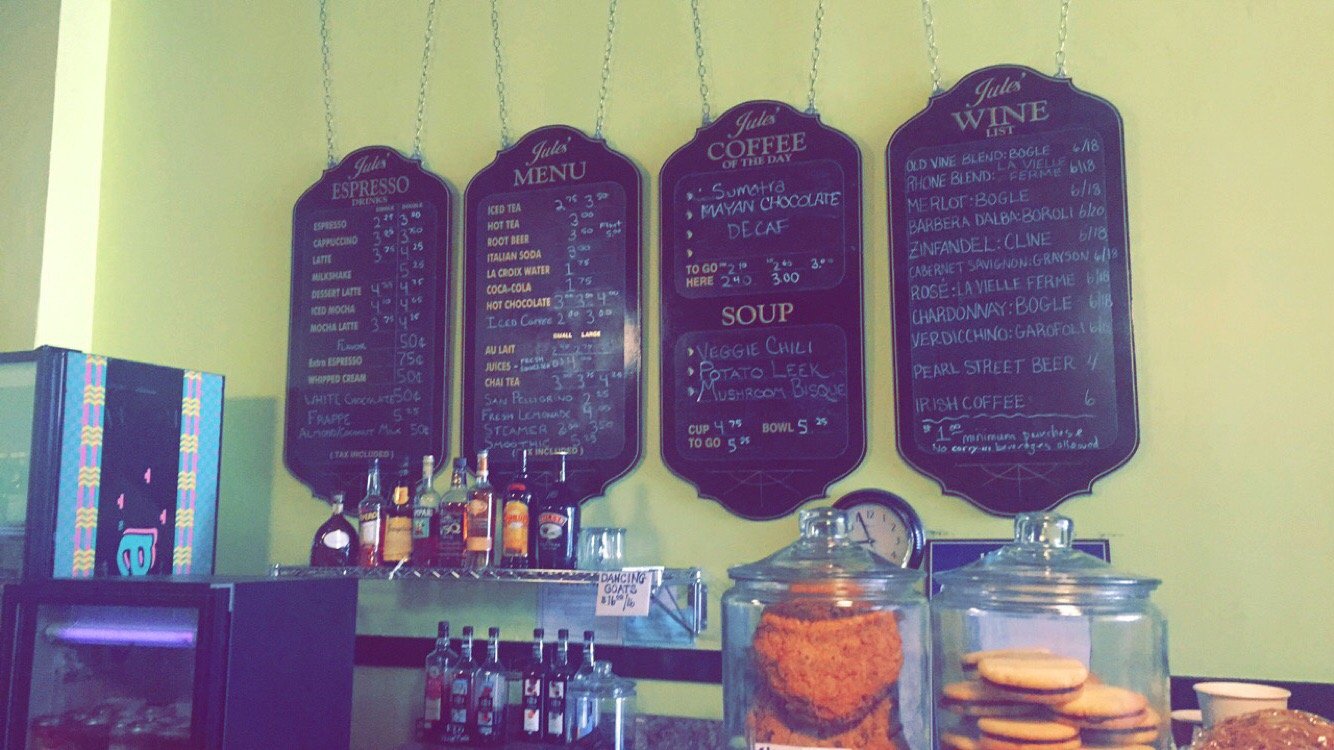 Jules'
ESPRESSO
DRINKS
SINGLE DOUBLE
ESPRESSO 2.25 3.00
CAPPUCCINO 3.50
LATTE 3.75 4.25
MILKSHAKE 5.25
DESSERT LATTE 4.25 4.75
ICED MOCHA 4.10 4.65
MOCHA LATTE 3.75 4.25
FLAVOR 50¢
Extra ESPRESSO 75¢
WHIPPED CREAM 50¢
WHITE CHOCOLATE 50¢
FRAPPE 5.25
ALMOND/COCONUT MILK 50¢
( TAX INCLUDED )
Jules'
MENU
ICED TEA 2.75 3.50
HOT TEA 3.00
ROOT BEER 3.50 Float 5.00
ITALIAN SODA 3.00
LA CROIX WATER 1.75
COCA-COLA 1.75
HOT CHOCOLATE 3.50 4.00
ICED COFFEE 2.00 3.00
SMALL LARGE
AU LAIT
JUICES - FRESH
CHAI TEA 3.75 4.25
SAN PELLIGRINO 2.25
FRESH LEMONADE 4.00
STEAMER 2.00 3.50
SMOOTHIE 5.25
(TAX INCLUDED )
Jules'
COFFEE
OF THE DAY
Sumatra
MAYAN CHOCOLATE
DECAF
TO GO 2.10 2.60 3.00
HERE 2.40 3.00
SOUP
VEGGIE CHILI
POTATO LEEK
MUSHROOM BISQUE
CUP 4.75 BOWL 5.25
TO GO 5.25
Jules'
WINE
LIST
OLD VINE BLEND: BOGLE 6/18
RHONE BLEND: LA VIELLE FERME 6/18
MERLOT: BOGLE 6/18
BARBERA DALBA: BOROLI 6/20
ZINFANDEL: CLINE 6/18
CABERNET SAVIGNON: GRAYSON 6/18
ROSÉ: LA VIELLE FERME 6/18
CHARDONNAY: BOGLE 6/18
VERDICCHINO: GAROFOLI 6/18
PEARL STREET BEER 4
IRISH COFFEE 6
$1.00 minimum purchase
No carry-in beverages allowed
DANCING
GOATS
$16.00/lb